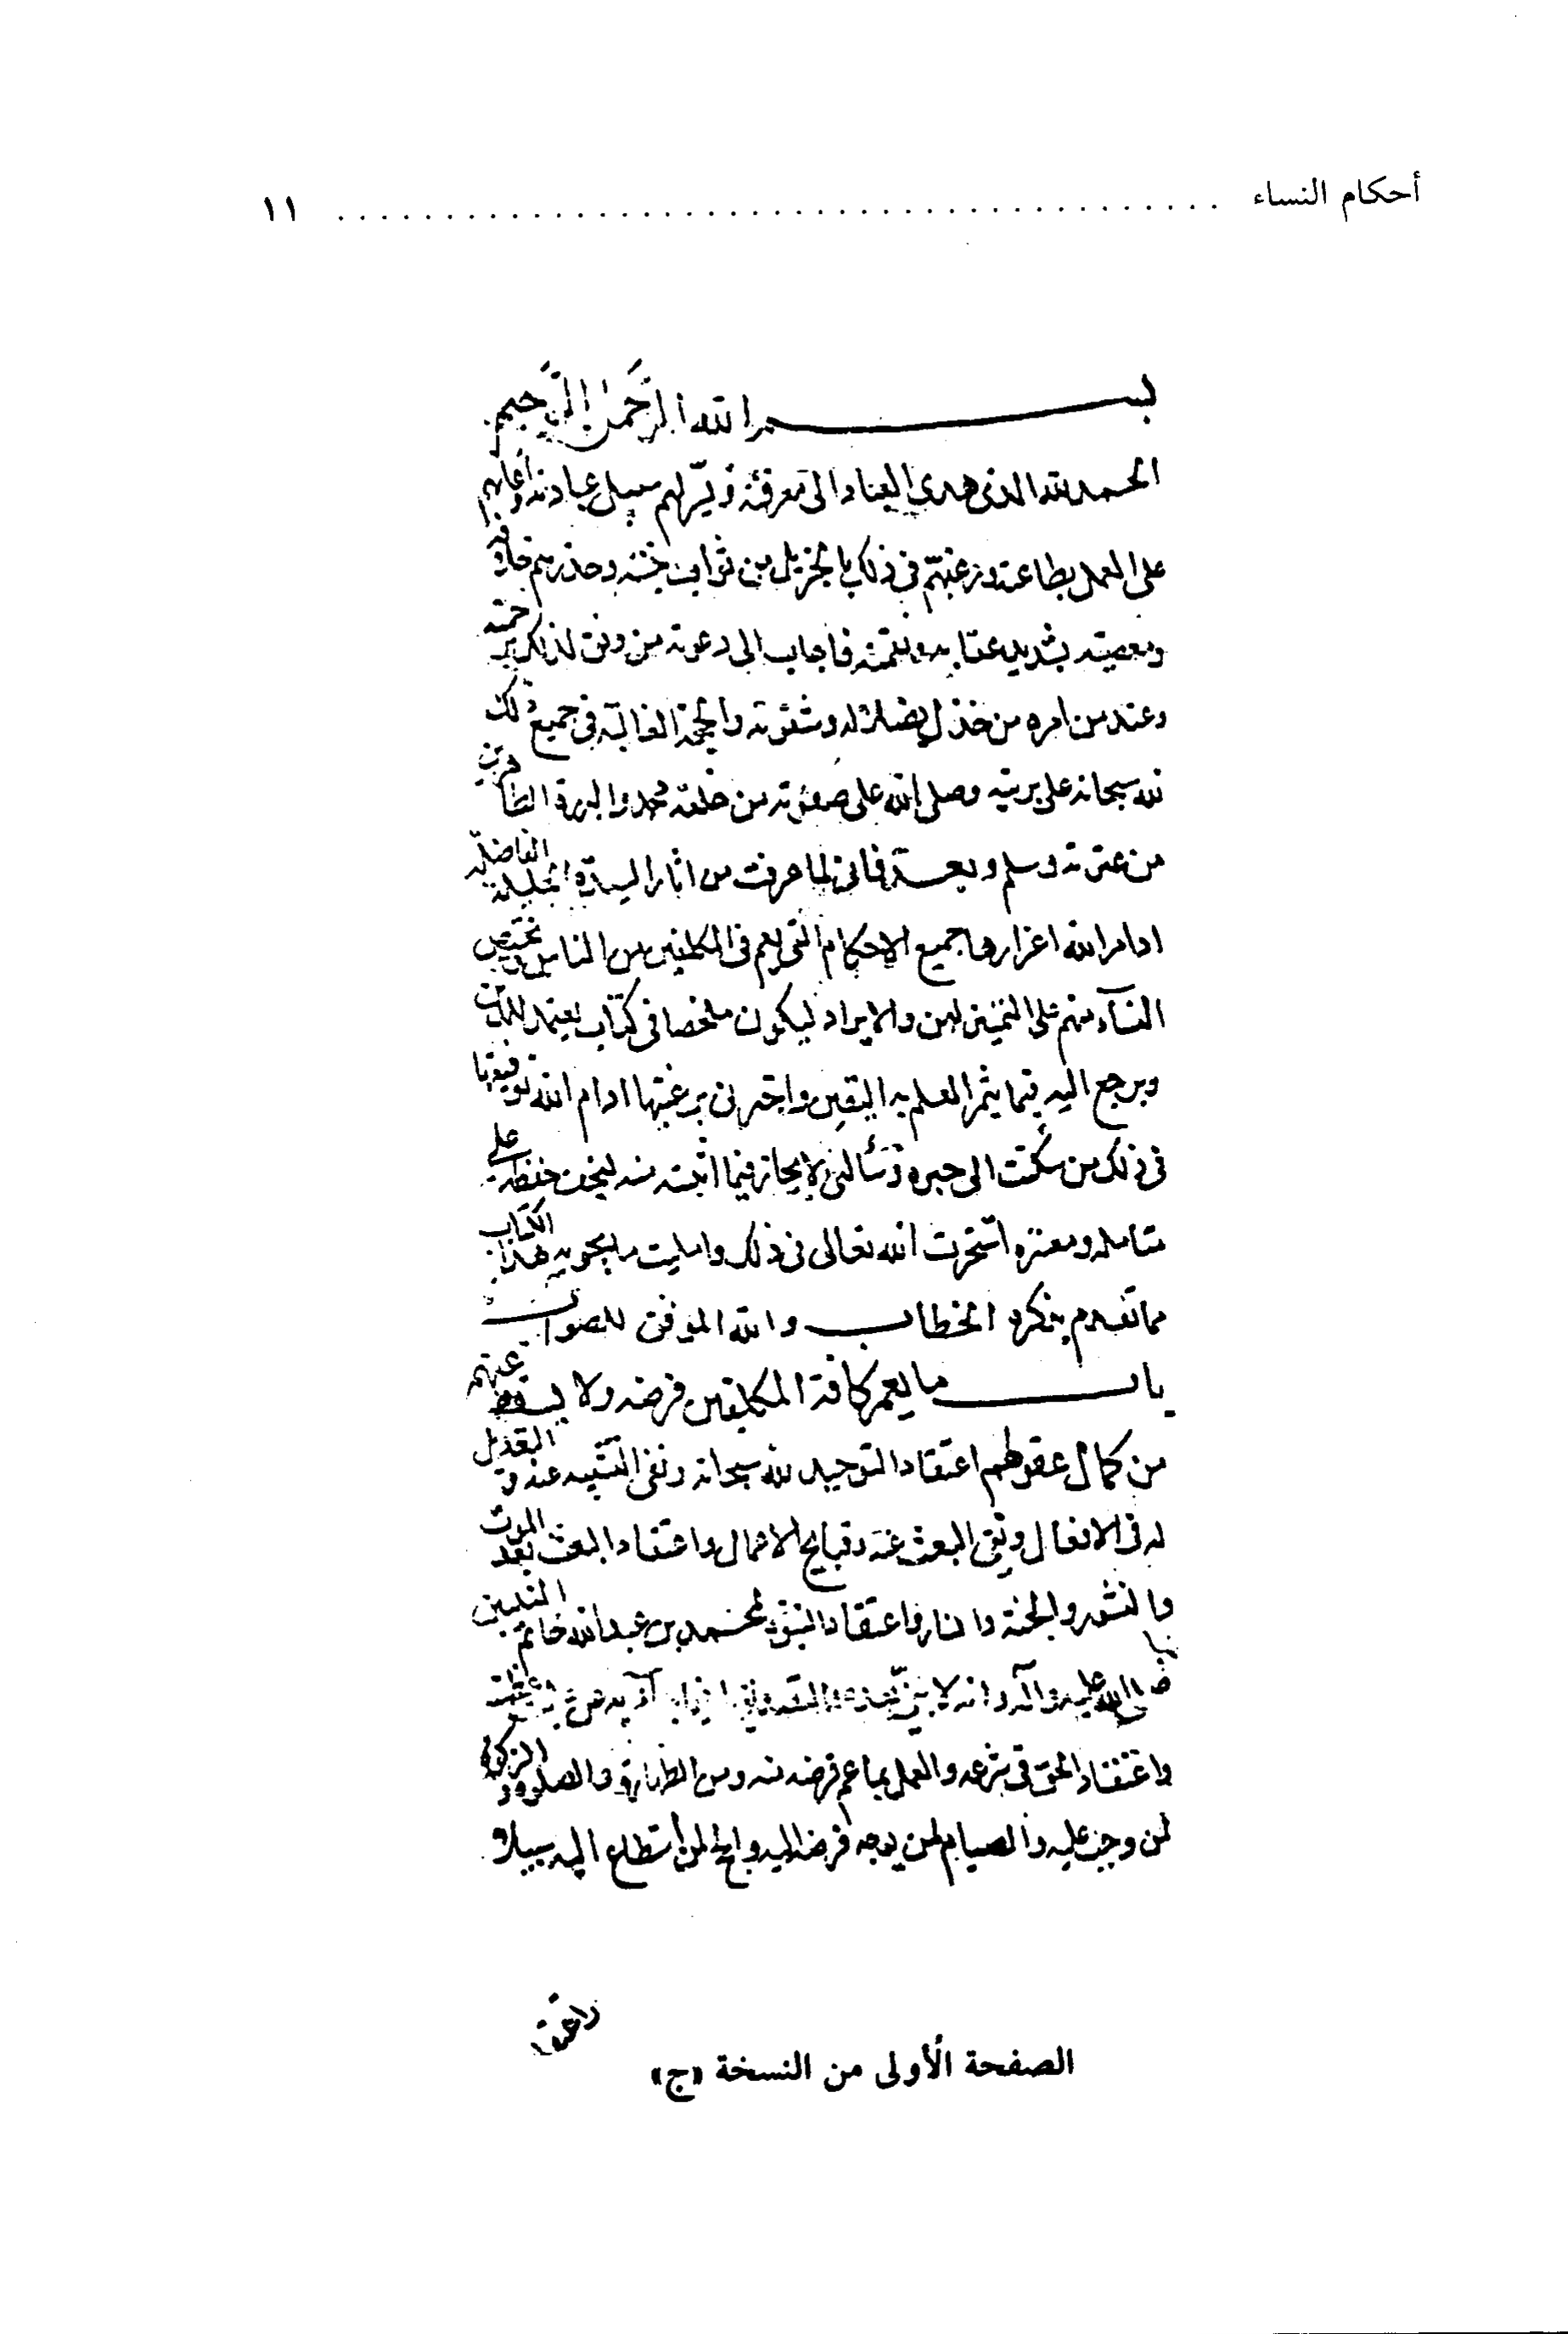 أحكام النساء ........................................ ١١
بسم الله الرحمن الرحيم
الحمد لله الذي هدى العباد الى معرفته ويسر لهم سبيل عبادته
على العمل بطاعته ورغبتهم في ذلك بالجزيل من ثواب جنته وحذرهم
ومعصيته بشديد عقابه ونقمته فاجاب الى دعوته من وفق لذلك برحمته
وعند من امره من خذل لضلاله وشقوته والحجة في جميع ذلك
لله سبحانه على بريته وصلى الله على صفوته من خلقه محمد والبررة الطاهرين
من عترته وسلم وبعد فاني لما عرفت من اثار السيدة الجليلة الفاضلة
ادام الله اعزازها جميع الاحكام التي تعم المكلفين من الناس وتختص
النساء منهم على التمييز لهن والايراد ليكون ملخصا في كتاب يعتمد للدين
ويرجع اليه فيما يثمر العلم به اليقين واخبرني برغبتها ادام الله توفيقها
في ذلك من سكنت الى خبره وسألني الايجاز فيما اثبته منه ليخف حفظه على
متامله ومعتبره استخرت الله تعالى في ذلك وامليت ما يحويه هذا الكتاب
مما تقدم بذكره الخطاب والله الموفق للصواب
باب ما يعم كافة المكلفين فرضه ولا يسقط عنهم
من كمال عقولهم اعتقاد التوحيد لله سبحانه ونفي التشبيه عنه والتعديل
له في الافعال ونفي العبث عنه وقبايح الاعمال واعتقاد البعث بعد الموت
والنشور والجنة والنار واعتقاد النبوة لمحمد بن عبد الله خاتم النبيين
صلى الله عليه وآله وانه لا
واعتقاد الحق في شرعه والعمل بما عم فرضه منه ومن الطهارة والصلوة والزكوة
لمن وجبت عليه والصيام لمن توجه فرضه اليه والحج لمن استطاع اليه سبيلا
الصفحة الأولى من النسخة «ج»